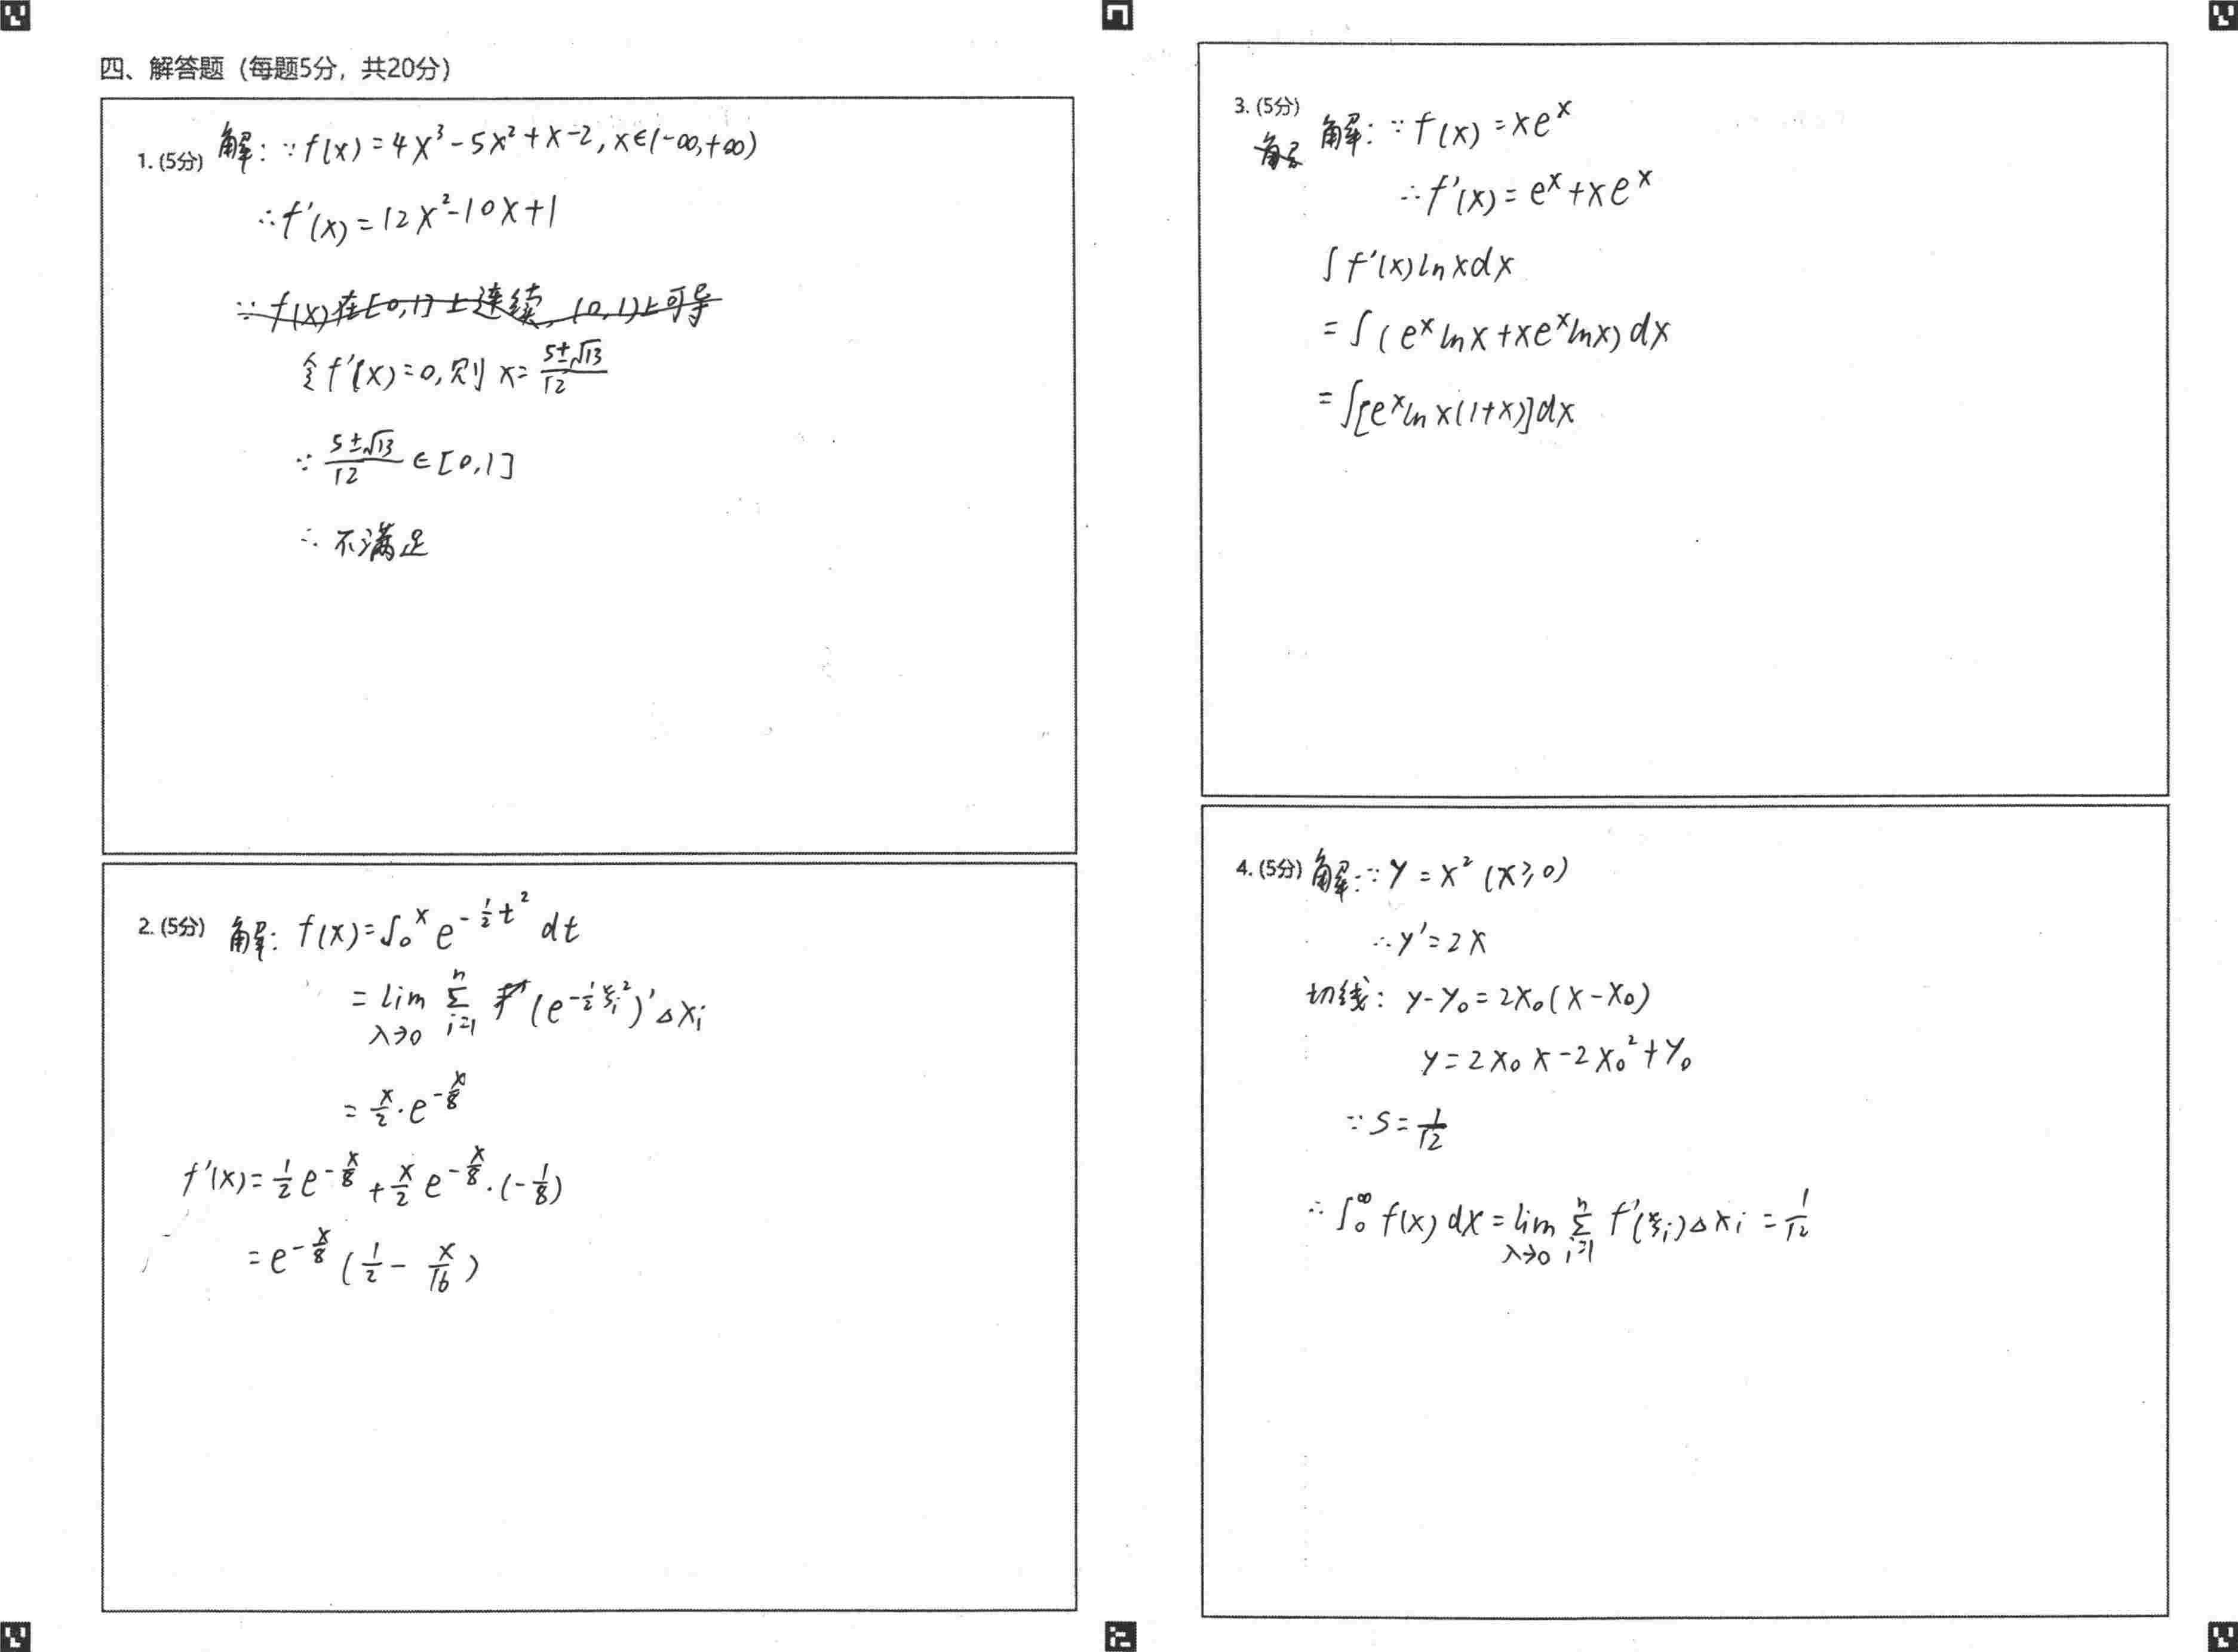 四、解答题（每题5分，共20分）
1. (5分) 解：∵f(x)=4x³-5x²+x-2, x∈(-∞,+∞)
∴f'(x)=12x²-10x+1
∵f(x)在[0,1]上连续，(0,1)上可导
令f'(x)=0,则 x=(5±√13)/12
∵ (5±√13)/12 ∈[0,1]
∴ 不满足
2. (5分) 解：f(x)=∫₀ˣ e^(-½t²) dt
= lim_(λ→0) Σ_(i=1)^n (e^(-½ξᵢ²))'△xᵢ
= x/2·e^(-x/8)
f'(x)=½e^(-x/8)+x/2 e^(-x/8)·(-1/8)
=e^(-x/8)(1/2 - x/16)
3. (5分) 解：∵f(x)=xeˣ
∴f'(x)=eˣ+xeˣ
∫f'(x)lnxdx
=∫(eˣlnx+xeˣlnx)dx
=∫[eˣlnx(1+x)]dx
4. (5分) 解：∵y=x²(x≥0)
∴y'=2x
切线：y-y₀=2x₀(x-x₀)
y=2x₀x-2x₀²+y₀
∵S=1/12
∴∫₀^∞ f(x)dx=lim_(λ→0) Σ_(i=1)^n f'(ξᵢ)△xᵢ=1/12